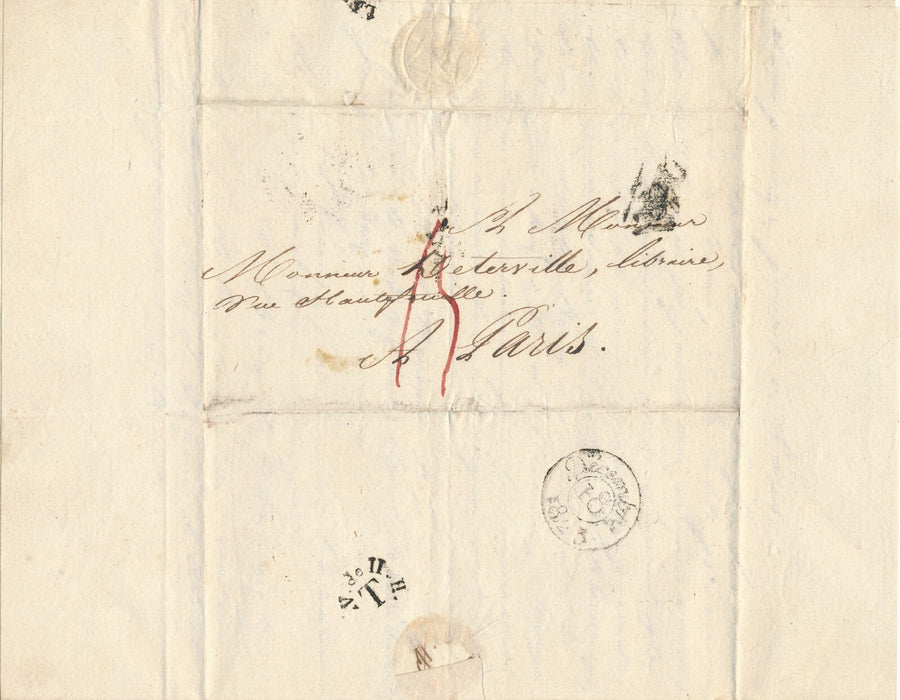 A Monsieur
Monsieur Deterville, libraire,
Rue Hautefeuille.
A Paris.
Décembre
18
T